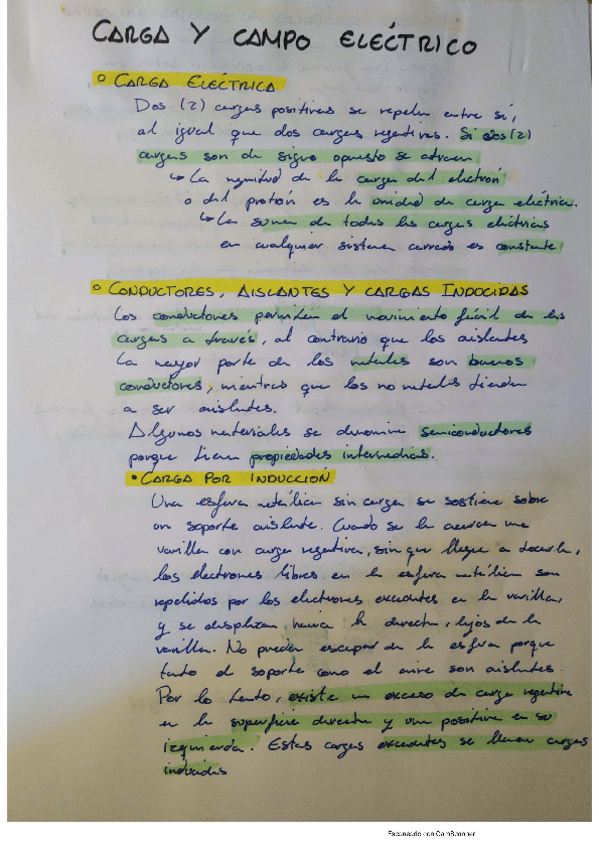 CARGA Y CAMPO ELÉCTRICO
° CARGA ELÉCTRICA
Dos (2) cargas positivas se repelen entre sí,
al igual que dos cargas negativas. Si dos (2)
cargas son de signo opuesto se atraen
↳ La magnitud de la carga del electrón
o del protón es la unidad de carga eléctrica.
↳ La suma de todas las cargas eléctricas
en cualquier sistema cerrado es constante
° CONDUCTORES, AISLANTES Y CARGAS INDUCIDAS
Los conductores permiten el movimiento fácil de las
cargas a través, al contrario que los aislantes
La mayor parte de los metales son buenos
conductores, mientras que los no metales tienden
a ser aislantes.
Algunos materiales se denominan semiconductores
porque tienen propiedades intermedias.
• CARGA POR INDUCCIÓN
Una esfera metálica sin carga se sostiene sobre
un soporte aislante. Cuando se le acerca una
varilla con carga negativa, sin que llegue a tocarla,
los electrones libres en la esfera metálica son
repelidos por los electrones excedentes en la varilla,
y se desplazan hacia la derecha, lejos de la
varilla. No pueden escapar de la esfera porque
tanto el soporte como el aire son aislantes.
Por lo tanto, existe un exceso de carga negativa
en la superficie derecha y una positiva en su
izquierda. Estas cargas excedentes se llaman cargas
inducidas
Escaneado con CamScanner